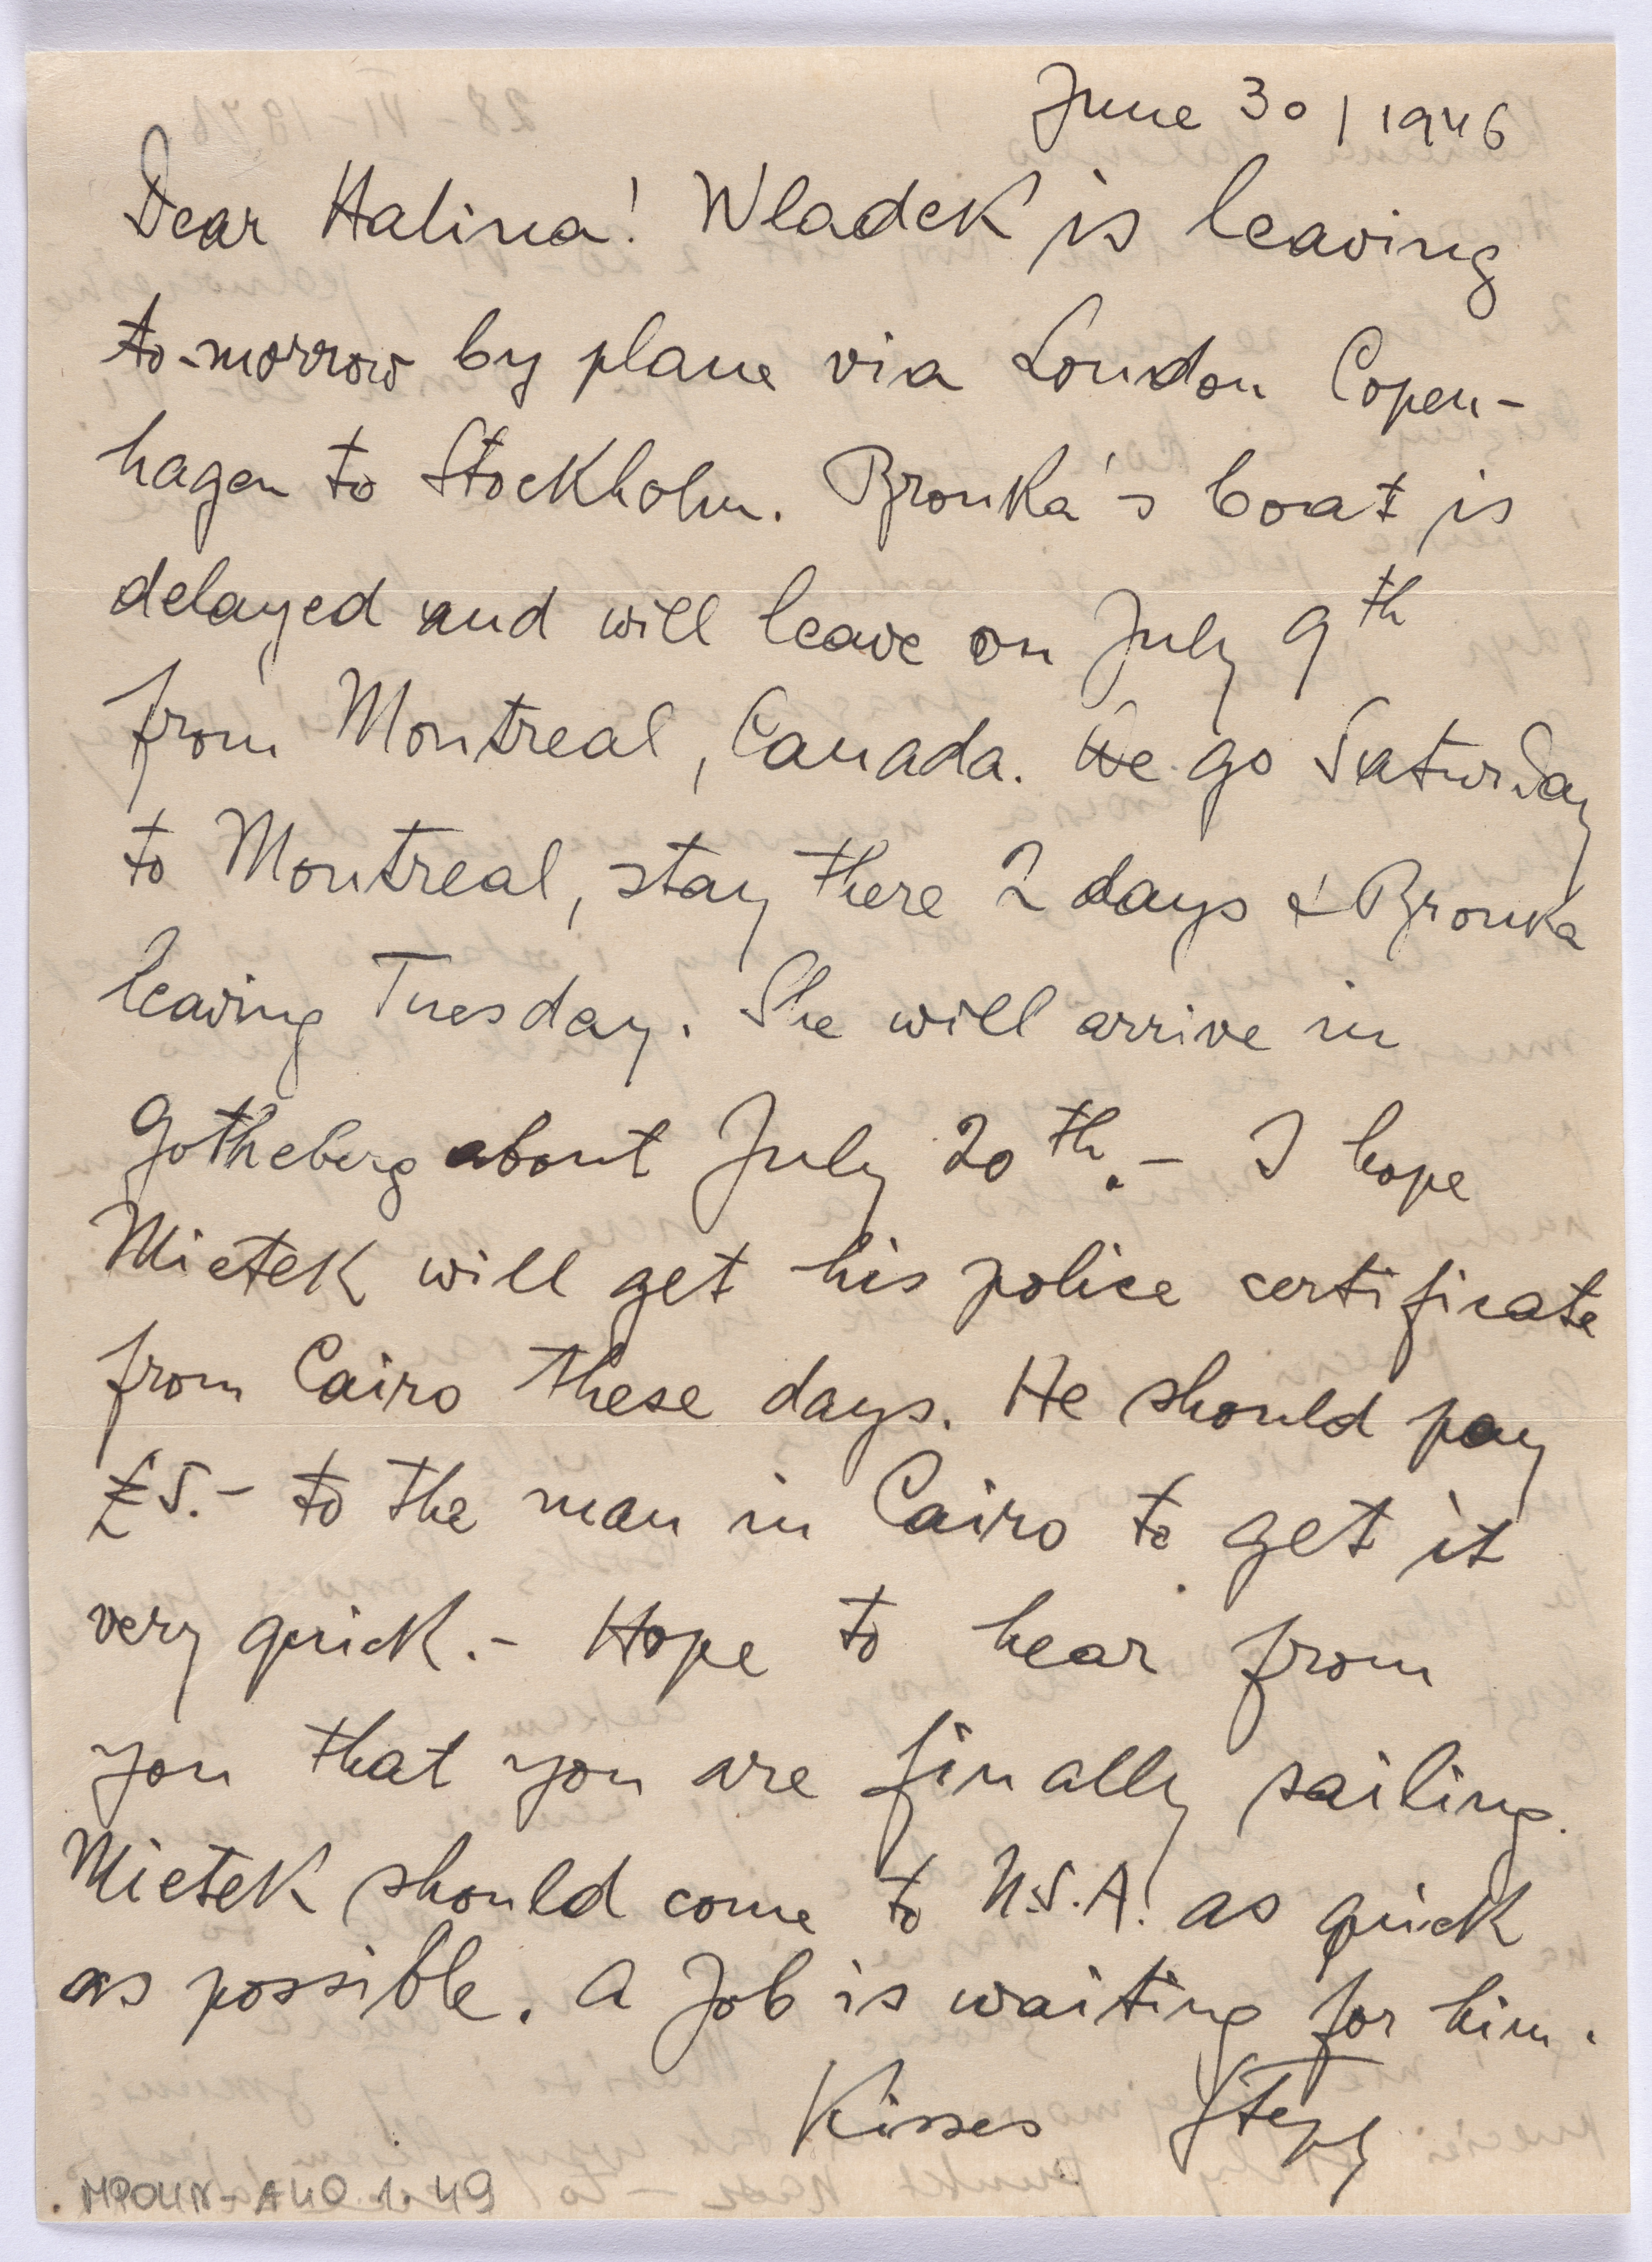 June 30 / 1946
Dear Halina! Wladek is leaving
to-morrow by plane via London Copen-
hagen to Stockholm. Bronka's boat is
delayed and will leave on July 9th
from Montreal, Canada. We go Saturday
to Montreal, stay there 2 days & Bronka
leaving Tuesday. She will arrive in
Gotheberg about July 20th. - I hope
Mietek will get his police certificate
from Cairo these days. He should pay
£5.- to the man in Cairo to get it
very quick. - Hope to hear from
you that you are finally sailing.
Mietek should come to U.S.A. as quick
as possible. A Job is waiting for him.
Kisses Steph
MPOLIN-A40 1.49